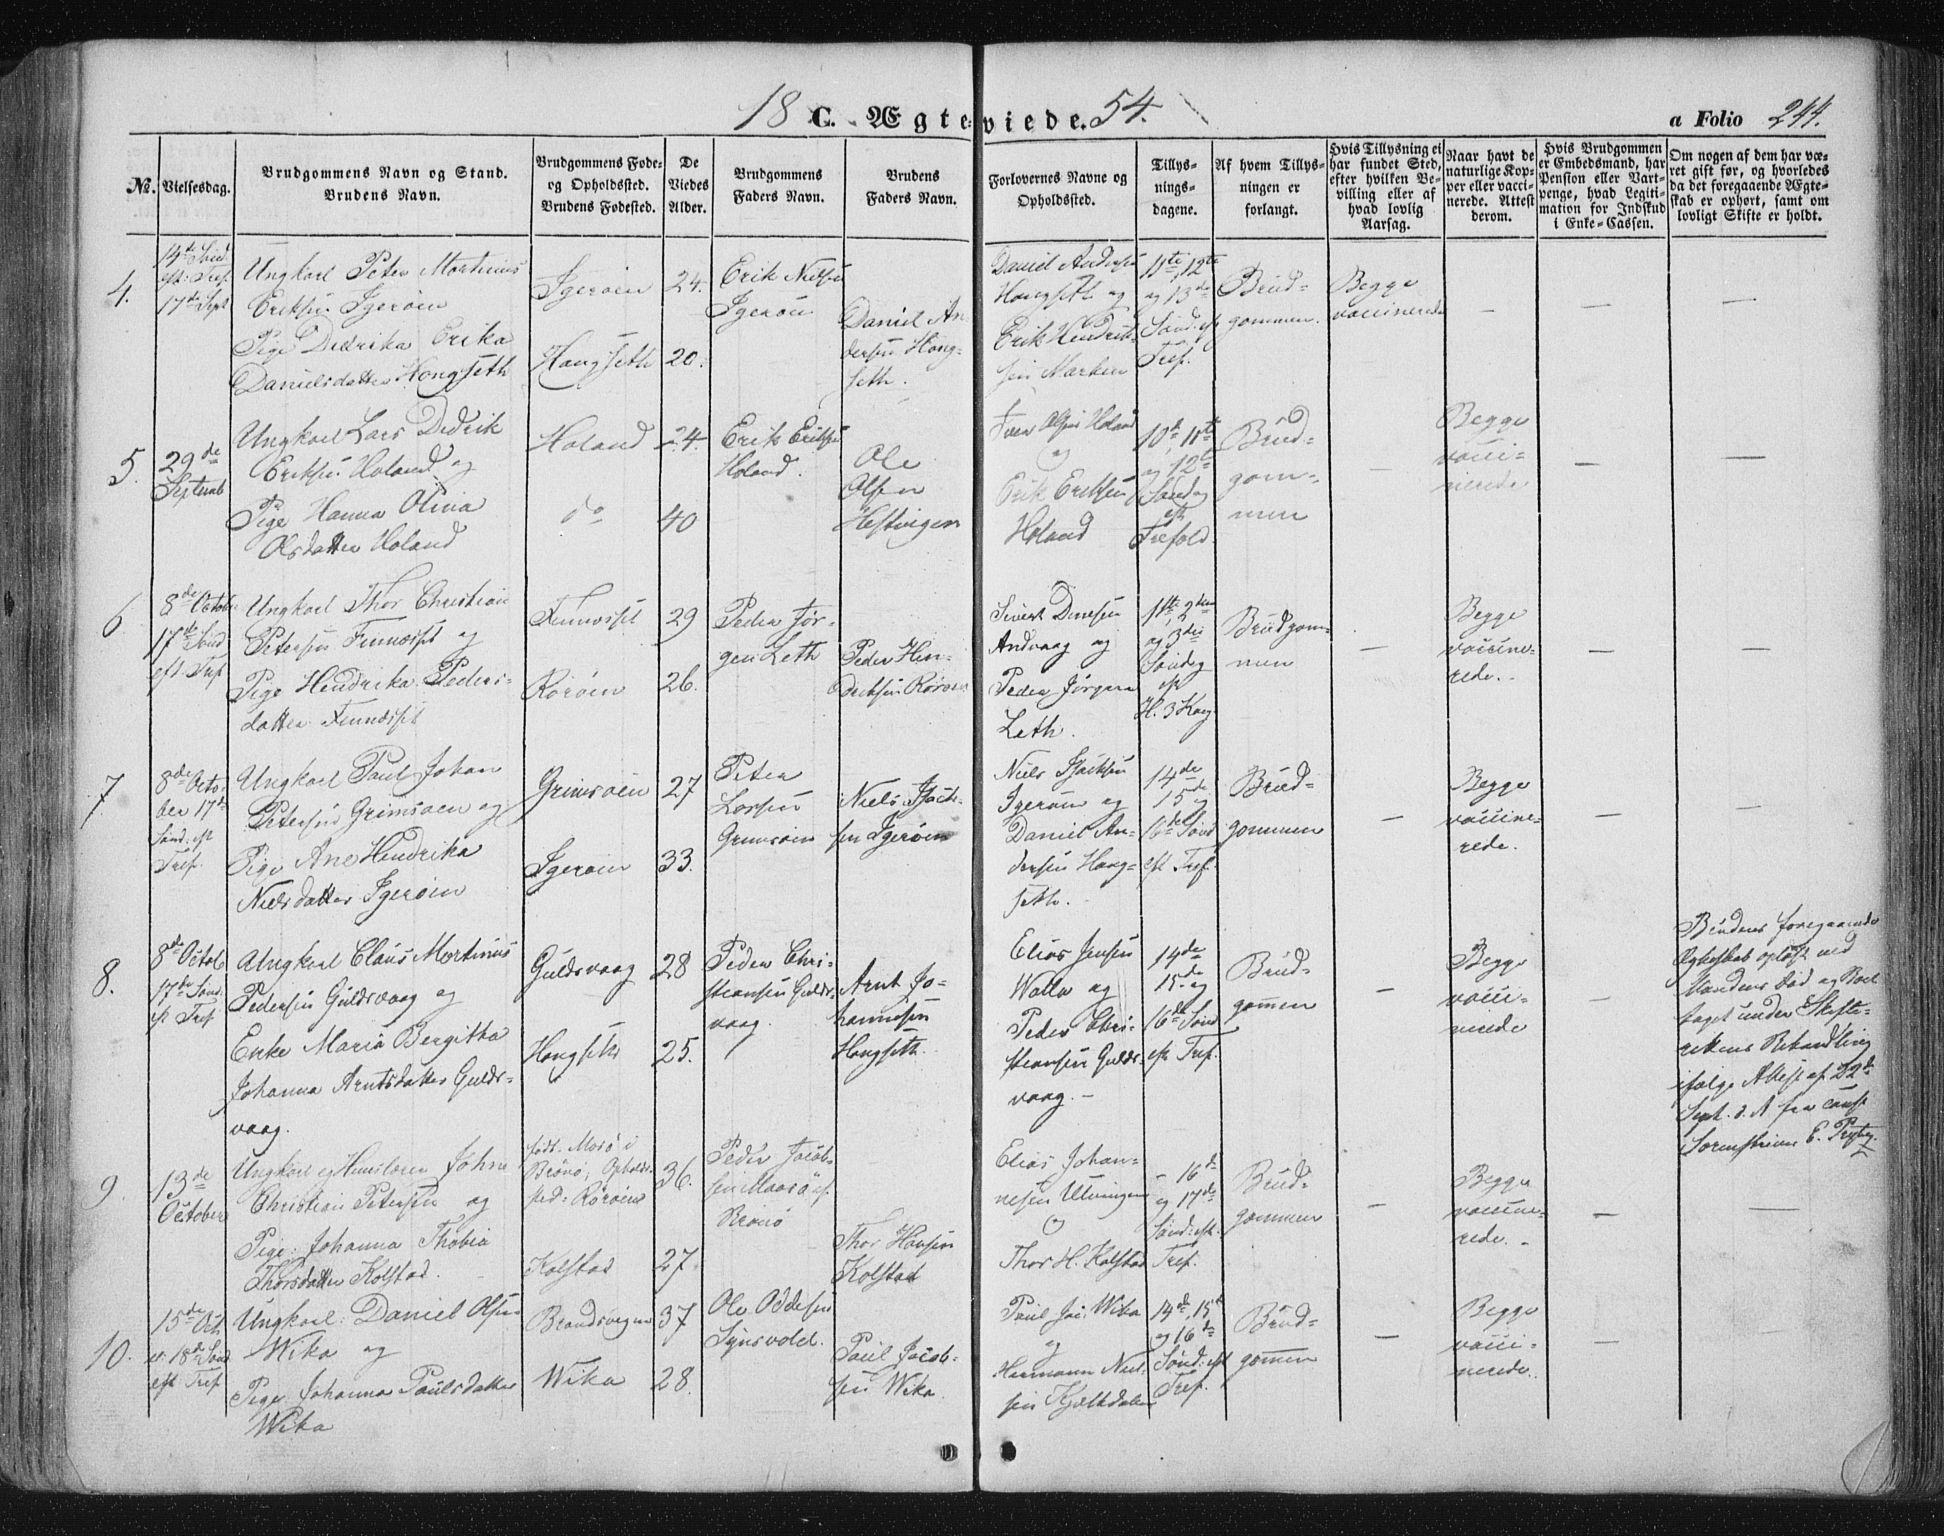 18 C. Ægteviede. 54.
a Folio 244.
No.
Vielsesdag.
Brudgommens Navn og Stand.
Brudens Navn.
Brudgommens Føde-
og Opholdssted.
Brudens Fødested.
De
Viedes
Alder.
Brudgommens
Faders Navn.
Brudens
Faders Navn.
Forlovernes Navne og
Opholdssted.
Tillys-
nings-
dagene.
Af hvem Tillys-
ningen er
forlangt.
Hvis Tillysning ei
har fundet Sted,
efter hvilken Be-
villing eller af
hvad lovlig
Aarsag.
Naar havt de
naturlige Kop-
per eller vacci-
nerede. Attest
derom.
Hvis Brudgommen
er Embedsmand, har
Pension eller Vart-
penge, hvad Legiti-
mation for Indskud
i Enke-Cassen.
Om nogen af dem har væ-
ret gift før, og hvorledes
da det foregaaende Ægte-
skab er ophørt, samt om
lovligt Skifte er holdt.
4.
14de Sønd
eft. Tref.
17de Sept
Ungkarl Peter Martinus
Eriksen Igerøen
Pige Dedrika Erika
Danielsdatter Hongseth
Igerøen
Hongseth
24.
20.
Erik Nielsen
Igerøen
Daniel An
dersen Hong-
seth.
Daniel Andersen
Hongseth og
Erik Hendrik-
sen Marken
11te, 12te
og 13de
Sønd: eft
Tref.
Brud-
gommen.
Begge
vaccinerede
—
—
—
5.
29de
Septemb
Ungkarl Lars Dedrik
Eriksen Holand og
Pige Hanna Olina
Olsdatter Holand
Holand
do
24.
40
Erik Eriksen
Holand.
Ole
Olsen
Hestvigen
Iver Olsen Holand
og
Erik Eriksen
Holand
10de, 11te
og 12te
Søndag
eft
Trefold.
Brud-
gom-
men
—
Begge
vacci-
nerede
—
—
6
8de Octob
17de Sønd
eft. Tref
Ungkarl Thor Christian
Petersen Finnesset og
Pige Hendrika Peders-
datter Finnesset
Rørøen
29
26.
Peder Jør-
gen Leth
Peder Hen-
driksen Rørøen
Sivert Dinesen
Andvaag og
Peder Jørgen
Leth.
og 3die
Søndag
eft
H. 3 Kong
Brudgom-
men
—
Begge
vaccine-
rede.
—
—
7
8de Octo-
ber 17de
Sønd: eft
Tref.
Ungkarl Paul Johan
Petersen Grimsøen og
Pige Ane Hendrika
Nielsdatter Igerøen
Grimsøen
Igerøen
27
33.
Peter
Larsen
Grimsøen
Niels Isach-
sen Igerøen
Niels Isachsen
Igerøen og
Daniel An-
dersen Hong-
seth.
14de
15de
16de Sønd
eft Tref.
Brud-
gommen
—
Begge
vaccine-
rede.
—
8.
8de Octob
17de Sønd.
eft Tref
Ungkarl Claus Martinus
Pedersen Guldsvaag og
Enke Maria Bergitha
Johanna Arntsdatter Gulds-
vaag.
Guldsvaag
Hongseth
28
25.
Peder Chri-
stiansen Gulds-
vaag.
Arnt Jo-
hannesen
Hongseth.
Elias Jensen
Walla og
Peder Chri-
stiansen Gulds-
vaag. -
14de
15de og
16de Sønd
eft Tref.
Brud-
gommen
—
Begge
vacci-
nerede
—
Brudens foregaaende
Ægteskab opløst ved
Mandens Død og Boet
taget under Skifte-
rettens Behandling
ifølge Attest af 22de
Sept. d. A fra const
Sorenskriver E.
9.
13de
October
Ungkarl og Huuslærer Johan
Christian Petersen og
Pige: Johanna Thobia
Thorsdatter Kolstad.
født: Mosø i
Brønø, Opholds-
sted: Rørøen
Kolstad
36.
27
Peder Jacob-
sen Moesø
Brønø
Thor Hansen
Kolstad
Elias Johan-
nesen Utvingen
og
Thor H. Kolstad
- 16de
og 17de
Sønd: eft.
Tref.
Brud-
gommen
—
Begge
vaccine-
rede. -
—
—
10.
15de Oct.
v: 18de Sønd
eft Tref
Ungkarl: Daniel Olsen
Wika og
Pige Johanna Paulsdatter
Wika
Brandsvigen
Wika
37
28.
Ole Oddesen
Paul Jacob-
sen Wika.
Paul Jac: Wika
og
Hermann Niel-
sen
14de, 15de
og 16de
Sønd: eft
Tref.
Brud-
gommen
—
Begge
vacci-
nerede.
—
—